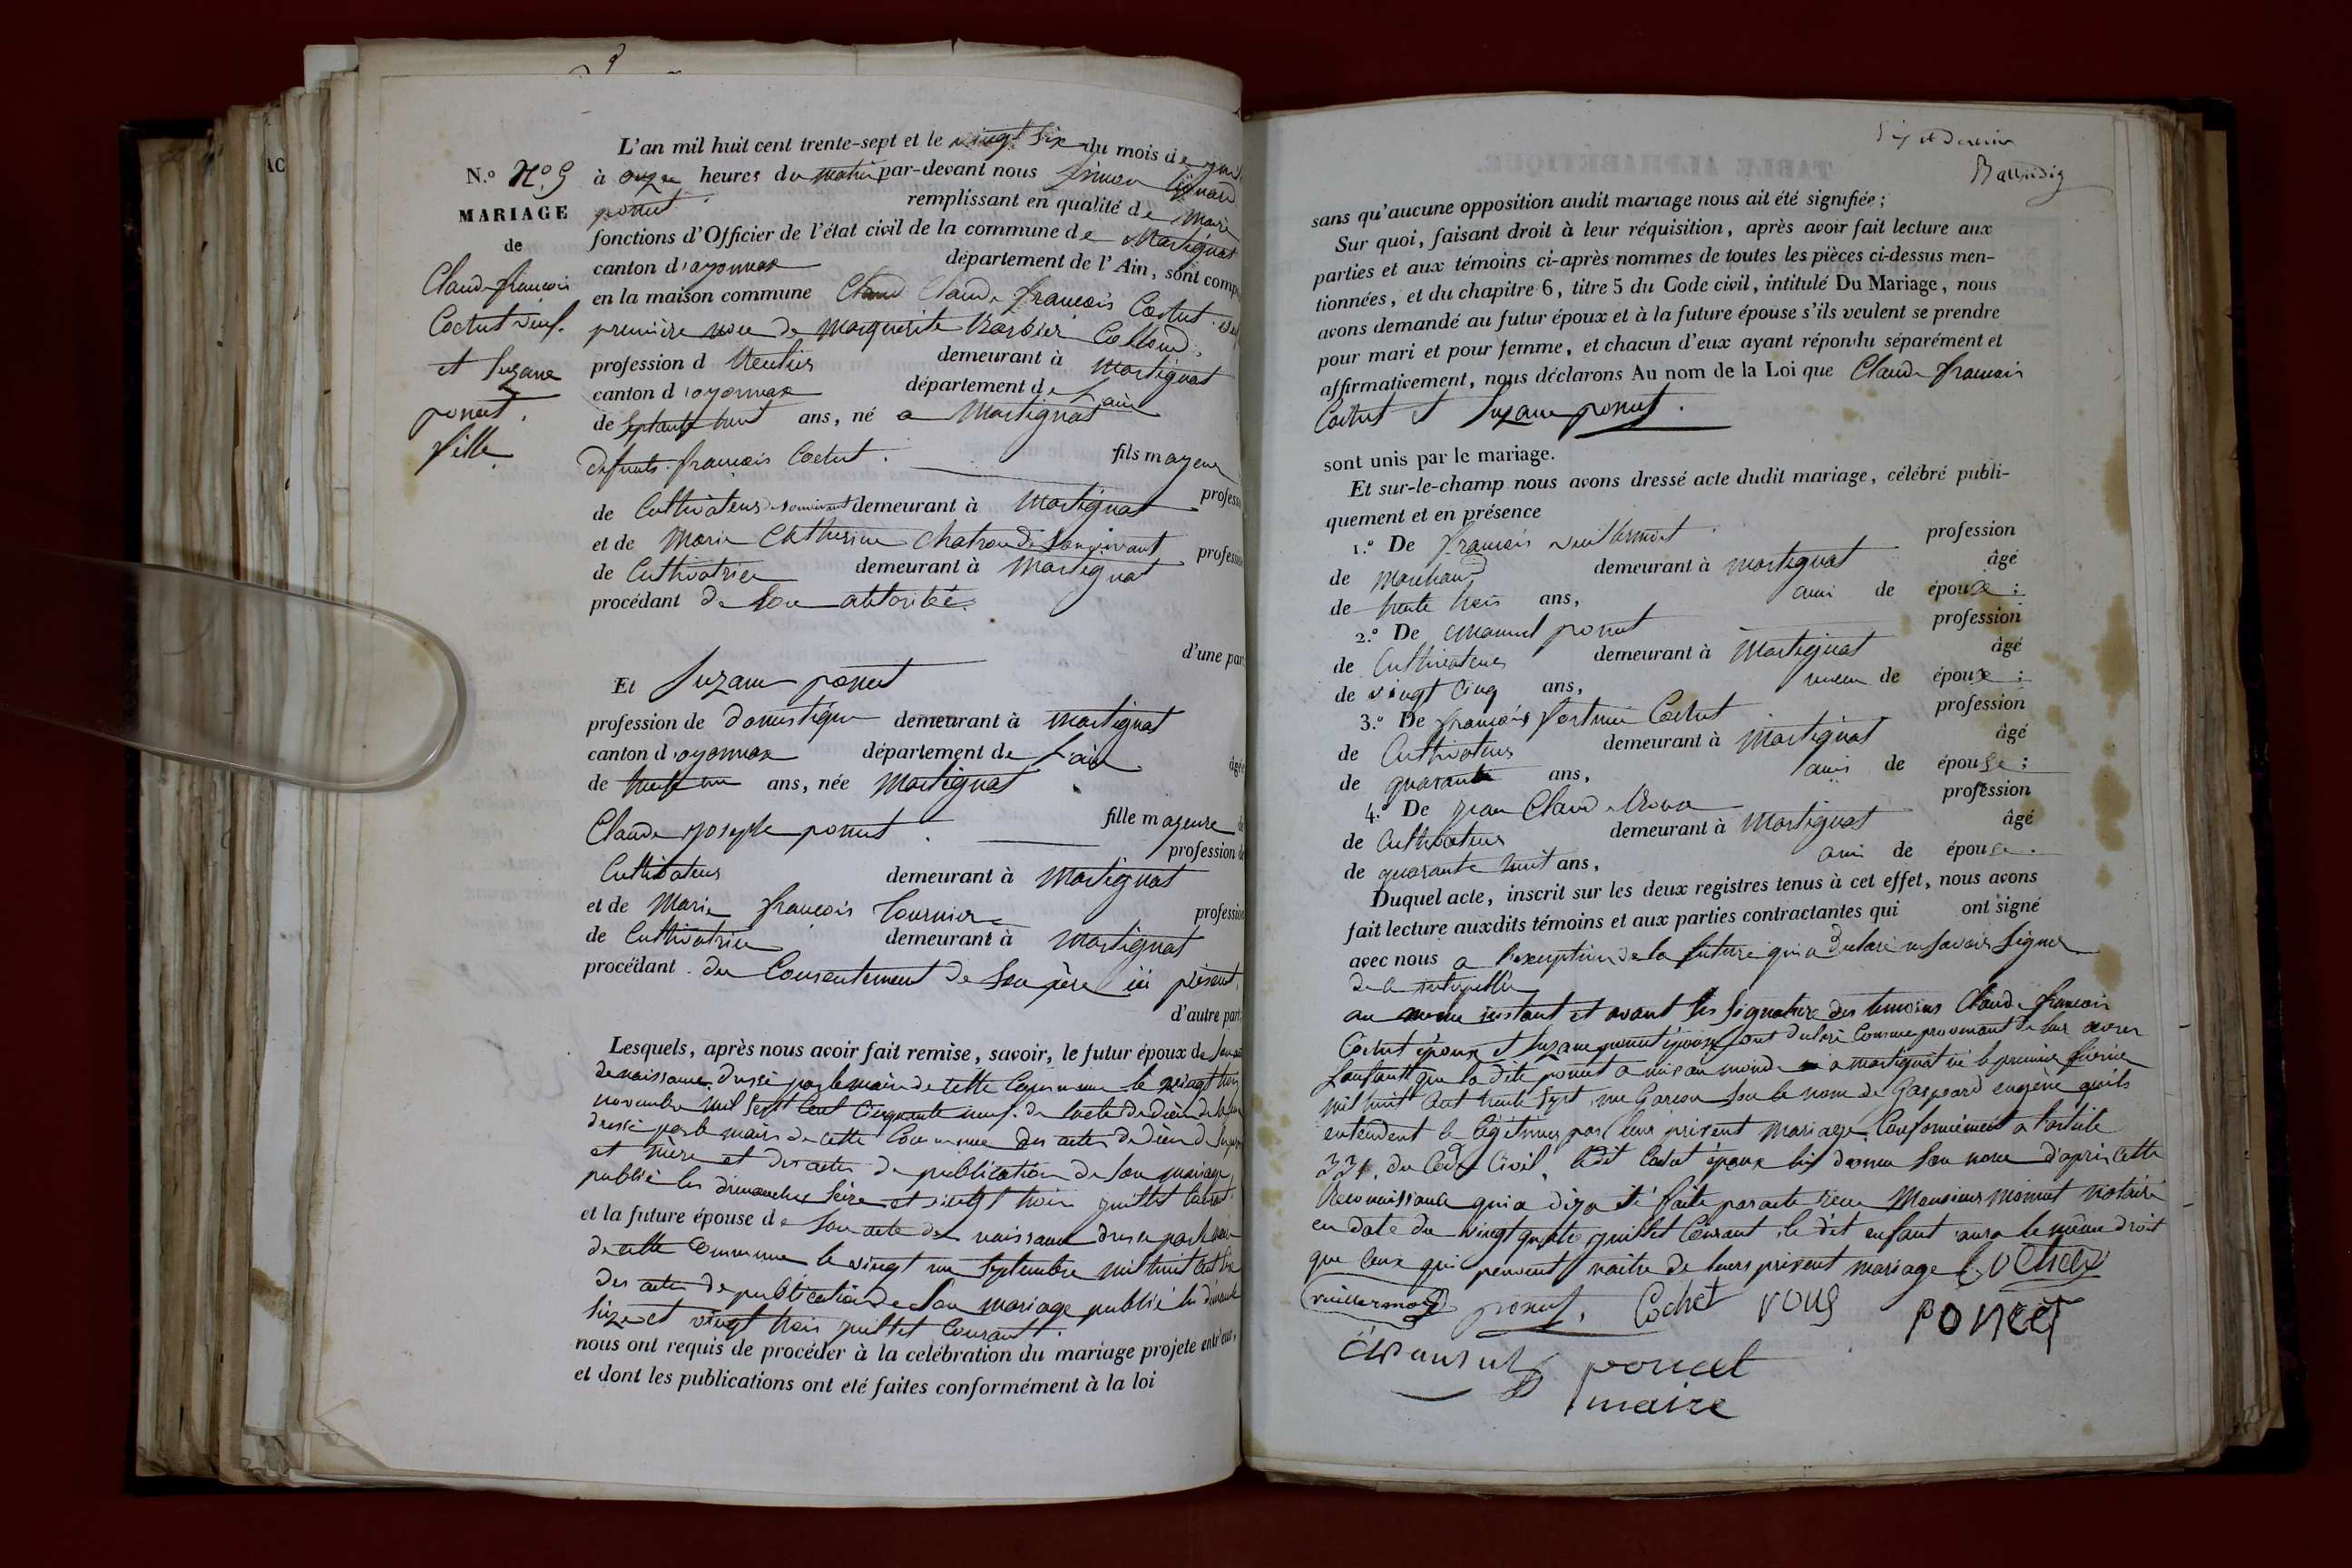 N.º N.º 9
MARIAGE
de
Claude françois
Coctut veuf.
et Suzane
ponct.
fille
L'an mil huit cent trente-sept et le vingt six du mois de
à onze heures du matin par-devant nous Simon
ponct remplissant en qualité de Maire
fonctions d'Officier de l'état civil de la commune de Martignat
canton d'oyonnax département de l'Ain, sont comp
en la maison commune Claude françois Coctut
première noce de Marguerite Barbier Collond,
profession d Rentier demeurant à Martignat
canton d'oyonnax département de L'ain
de septante huit ans, né a Martignat
fils mageur
defunts françois Coctut. profess
de Cultivateur de son vivant demeurant à Martignat
et de Marie Catherine Chatron de son vivant profession
de Cultivatrice demeurant à Martignat
procédant de son authorité
d'une part
Et Suzane ponct
profession de domestique demeurant à Martignat
canton d'oyonnax département de L'ain âgée
de trente un ans, née Martignat
fille mageure de
Claude joseph ponct. profession de
Cultivateur demeurant à Martignat
et de Marie françois Tournier profession
de Cultivatrice demeurant à Martignat
procédant du Consentement de Son père ici présent,
d'autre part
Lesquels, après nous avoir fait remise, savoir, le futur époux de
de naissance dressé par le maire de cette Commune le vingt
novembre mil sept cent cinquante neuf. de l'acte de décès de
dressé par le maire de cette Commune des actes de décès de
et mère et des actes de publication de son mariage
publié les dimanches seize et vingt trois juillet courant
et la future épouse de son acte de naissance dressé par le maire
de cette Commune le vingt un Septembre mil huit cent six
des actes de publication de Son mariage publié les dimanche
Size et vingt trois juillet Courant.
nous ont requis de procéder à la celébration du mariage projete entr'eux,
et dont les publications ont eté faites conformément à la loi
sans qu'aucune opposition audit mariage nous ait été signifiée;
Sur quoi, faisant droit à leur réquisition, après avoir fait lecture aux
parties et aux témoins ci-après nommes de toutes les pièces ci-dessus men-
tionnées, et du chapitre 6, titre 5 du Code civil, intitulé Du Mariage, nous
avons demandé au futur époux et à la future épouse s'ils veulent se prendre
pour mari et pour femme, et chacun d'eux ayant répondu séparément et
affirmativement, nous déclarons Au nom de la Loi que Claude françois
Coctut et Suzane ponct.
sont unis par le mariage.
Et sur-le-champ nous avons dressé acte dudit mariage, célébré publi-
quement et en présence
1.º De françois vuillermot profession
de Marchand demeurant à Martignat âgé
de trente trois ans, ami de épouse;
2.º De Emanuel ponct profession
de Cultivateur demeurant à Martignat âgé
de vingt cinq ans, de épouse;
3.º De françois Coctut profession
de Cultivateur demeurant à Martignat âgé
de quarante ans, ami de épouse;
4.º De jean Claude profession
de Cultivateur demeurant à Martignat âgé
de quarante huit ans, ami de épouse.
Duquel acte, inscrit sur les deux registres tenus à cet effet, nous avons
fait lecture auxdits témoins et aux parties contractantes qui ont signé
avec nous a l'exeuption de la future qui a declaré ne savoir signer
de ce interpellée
au meme instant et avant les signature des temoins Claude françois
Coctut époux et Suzane ponct épouse ont declaré Comme provenant de leur
L'enfant que la dite ponct a mis au monde a martignat né le premier fevrier
mil huit cent trente Sept un Garcon sou le nom de Gaspard eugène quils
entendent le légitimer par leur present Mariage. Conformement a l'article
331 du Code Civil, ledit Coctut époux lui donne son nom d'après cette
Reconnaissance qui a deja été faite par acte recu Monsieur Monnet Notaire
en date du vingt quatre juillet Courant, le dit enfant aura le même droit
que ceux qui peuvent naitre de leurs present mariage Cochet
vuillermoz ponct. Cochet poncet
poncet
maire